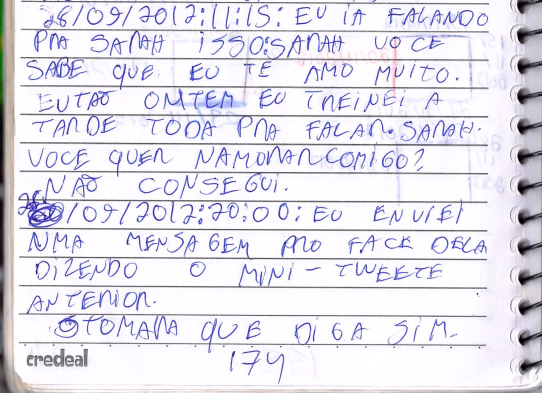 28/09/2012:11:15: EU IA FALANDO
PRA SARAH ISSO:SARAH VOCE
SABE QUE EU TE AMO MUITO.
EUTAO ONTEM EU TREINEI A
TARDE TODA PRA FALAR.SARAH.
VOCE QUER NAMORAR COMIGO?
NAO CONSEGUI.
28/09/2012:20:00: EU ENVIEI
NMA MENSAGEM PRO FACE DELA
DIZENDO O MINI-TWEETE
ANTERIOR.
TOMARA QUE DIGA SIM.
credeal 174